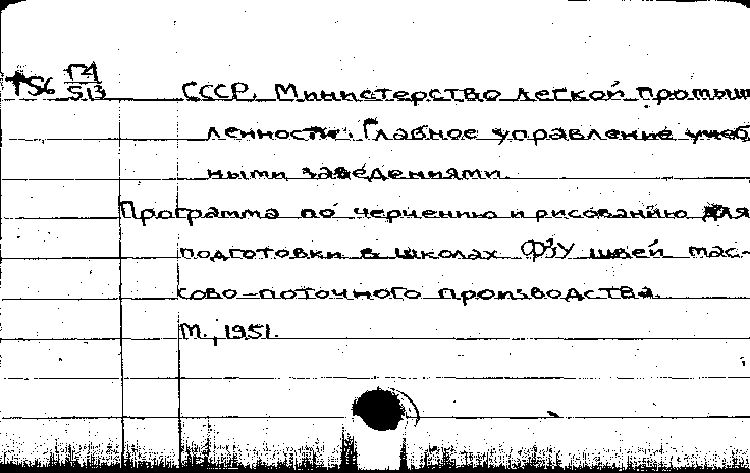 T56 Г4/513 СССР. Министерство легкой промыш
ленности. Главное управление учеб
ными заведениями.
Программа по черчению и рисованию для
подготовки в школах ФЗУ швей мас-
сово-поточного производства.
М., 1951.